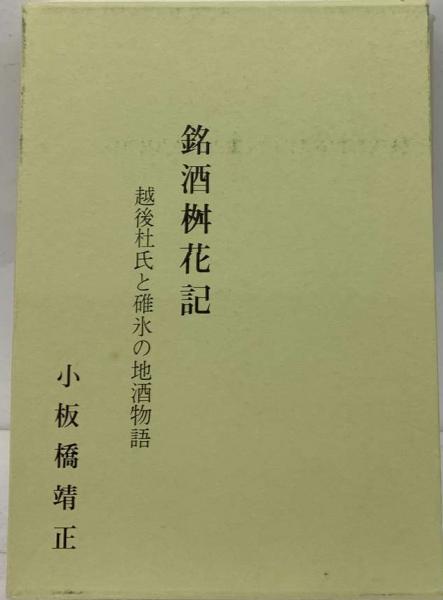 銘酒桝花記
越後杜氏と碓氷の地酒物語
小板橋靖正